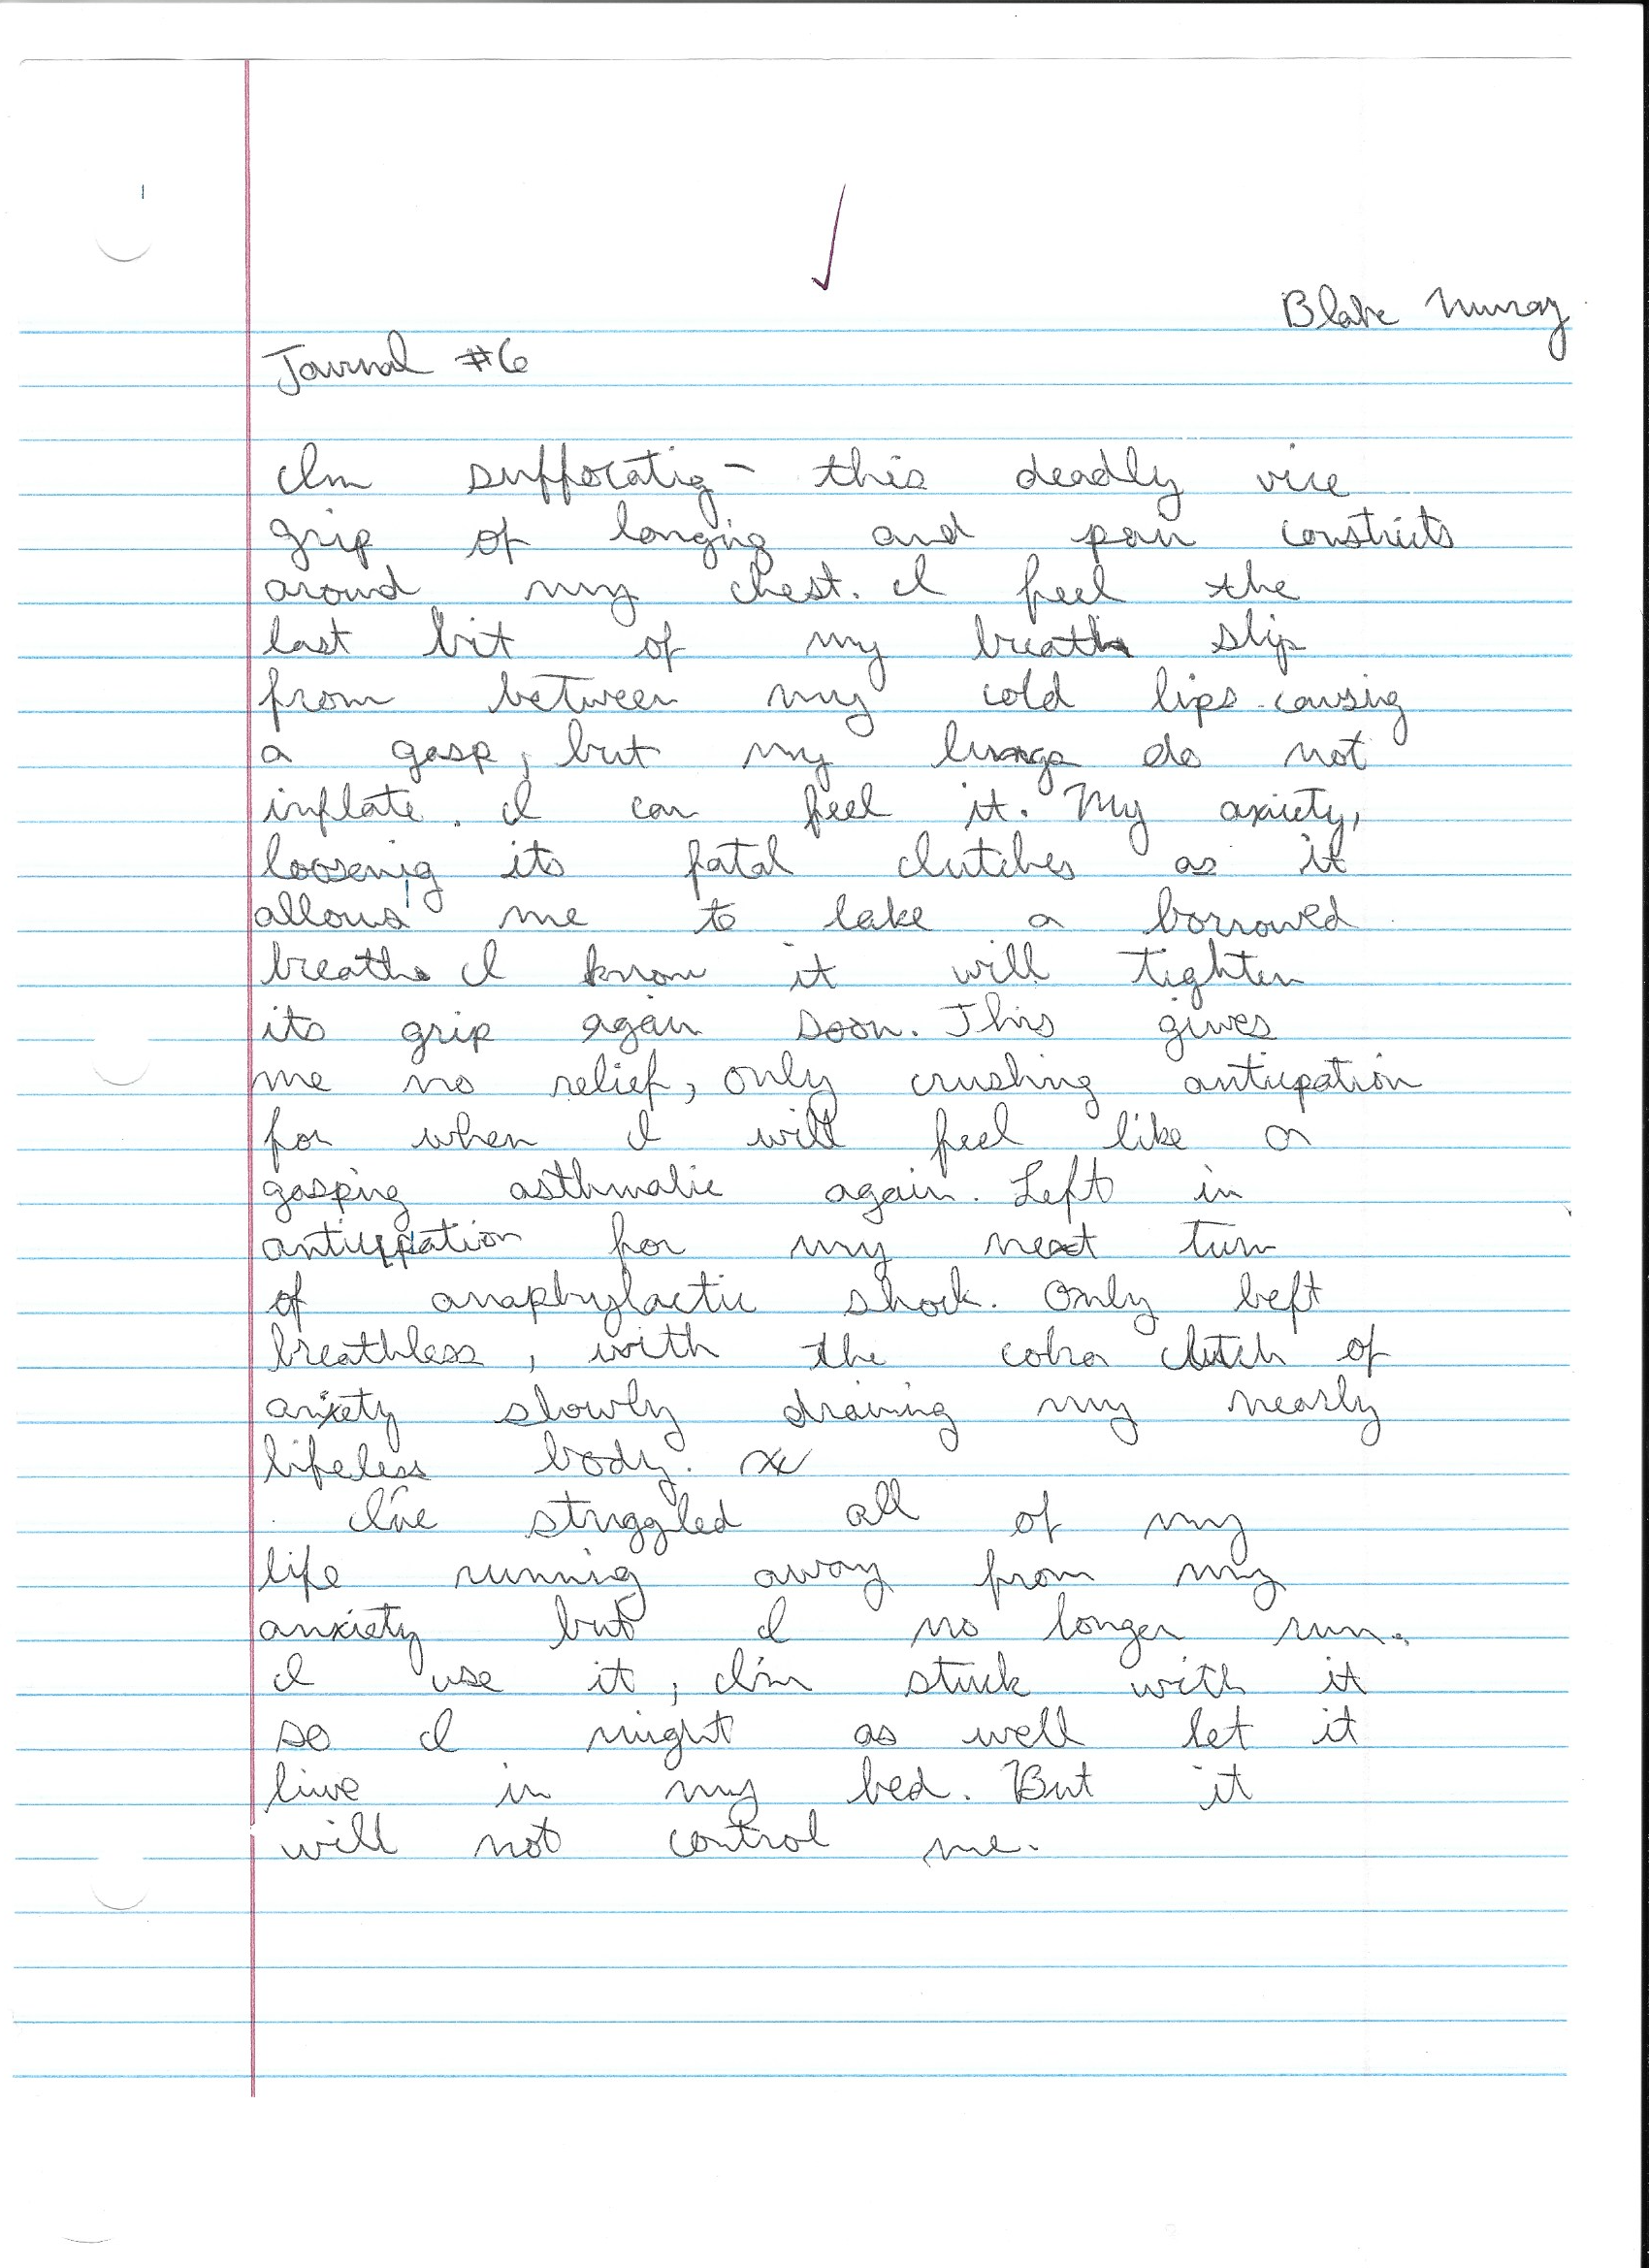 Blake Murray
Journal #6
Im suffocatig - this deadly vice
grip of longing and pain constricts
around my chest. I feel the
last bit of my breath slip
from between my cold lips causing
a gasp, but my lungs do not
inflate. I can feel it. My axiety,
loosenig its fatal clutches as it
allows me to take a borrowed
breath. I know it will tighten
its grip again soon. This gives
me no relief, only crushing anticpation
for when I will feel like a
gasping asthmatic again. Left in
anticipation for my next turn
of anaphylactic shock. Only left
breathless, with the cobra clutch of
anxiety slowly draining my nearly
lifeless body.
I've struggled all of my
life running away from my
anxiety but I no longer run.
I use it, I'm stuck with it
so I might as well let it
live in my bed. But it
will not control me.